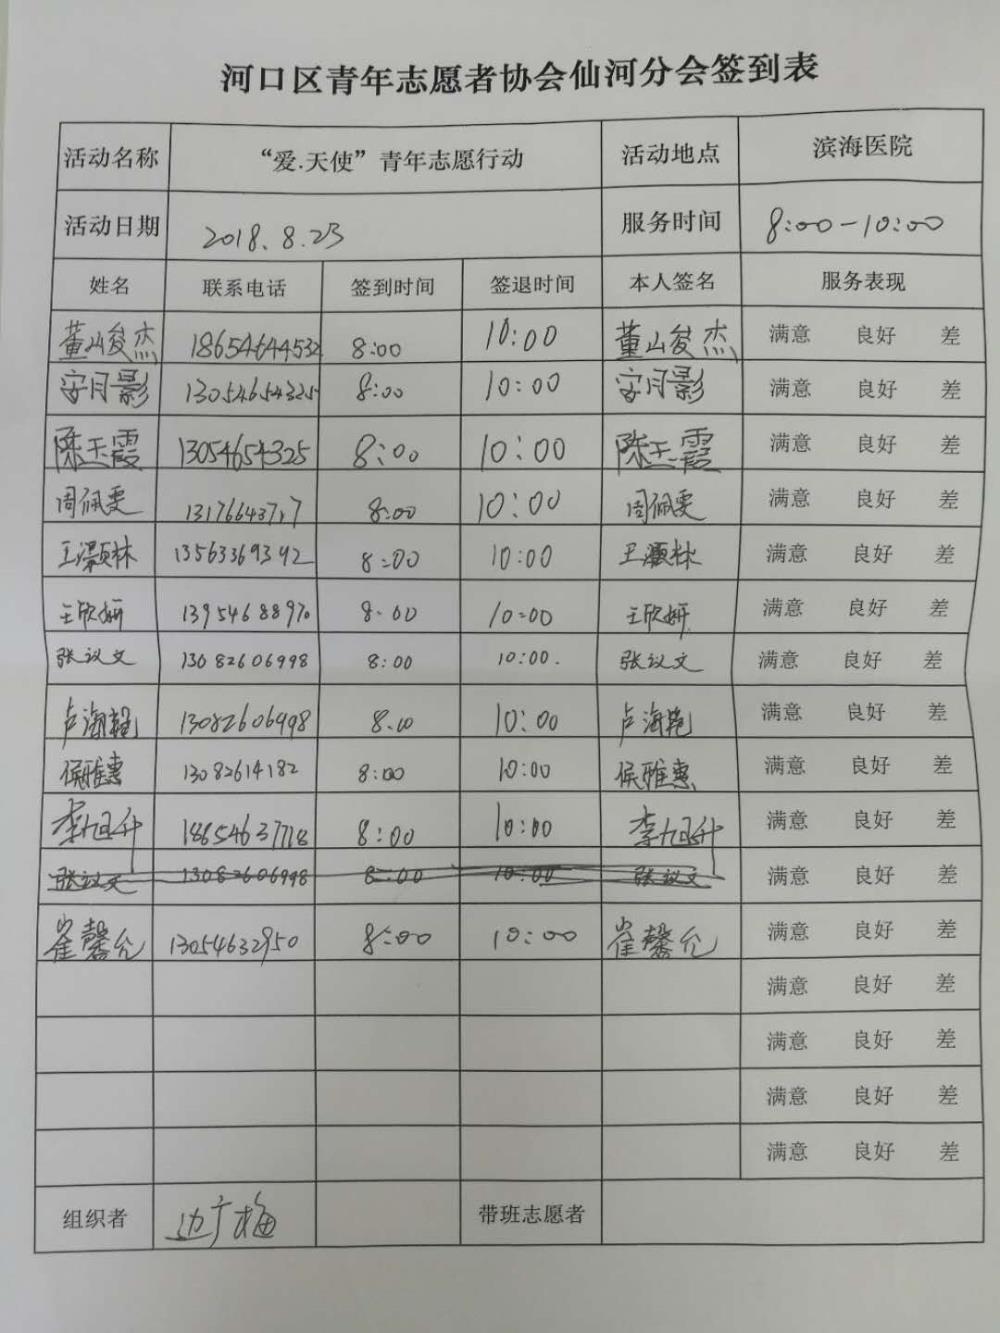 河口区青年志愿者协会仙河分会签到表
活动名称 “爱.天使”青年志愿行动 活动地点 滨海医院
活动日期 2018.8.23 服务时间 8:00-10:00
姓名 联系电话 签到时间 签退时间 本人签名 服务表现
董山俊杰 18654644532 8:00 10:00 董山俊杰 满意 良好 差
安月影 13054654325 8:00 10:00 安月影 满意 良好 差
陈玉霞 13054654325 8:00 10:00 陈玉霞 满意 良好 差
周佩雯 13176643717 8:00 10:00 周佩雯 满意 良好 差
王灏林 13563369392 8:00 10:00 王灏林 满意 良好 差
王欣妍 13954688970 8:00 10:00 王欣妍 满意 良好 差
张议文 13082606998 8:00 10:00. 张议文 满意 良好 差
13082606998 8:00 10:00 满意 良好 差
侯雅惠 13082614182 8:00 10:00 侯雅惠 满意 良好 差
李旭升 18654637718 8:00 10:00 李旭升 满意 良好 差
张议文 13082606998 8:00 10:00 张议文 满意 良好 差
崔馨允 13054632950 8:00 10:00 崔馨允 满意 良好 差
满意 良好 差
满意 良好 差
满意 良好 差
满意 良好 差
组织者 边广梅 带班志愿者